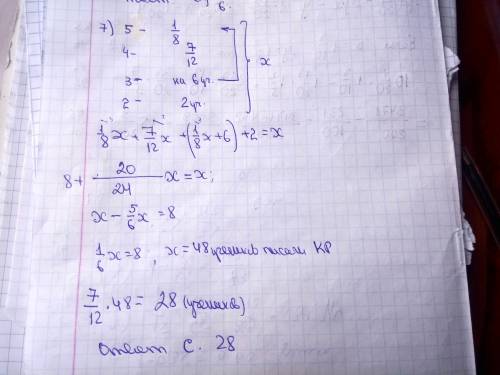 6.
7) 5 - 1/8
4 - 7/12
3 - на 6 уч.
2 - 2 уч.
x
1/8 x + 7/12 x + (1/8 x + 6) + 2 = x
8 + 20/24 x = x;
x - 5/6 x = 8
1/6 x = 8, x = 48 учеников писали КР
7/12 · 48 = 28 (учеников)
ответ С. 28